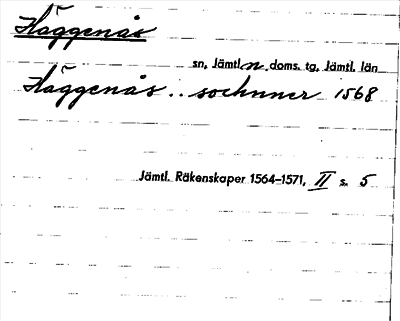 Häggenås
sn, Jämtl. n. doms. tg, Jämtl. län
Häggenås .. sochnner 1568
Jämtl. Räkenskaper 1564–1571, II s. 5